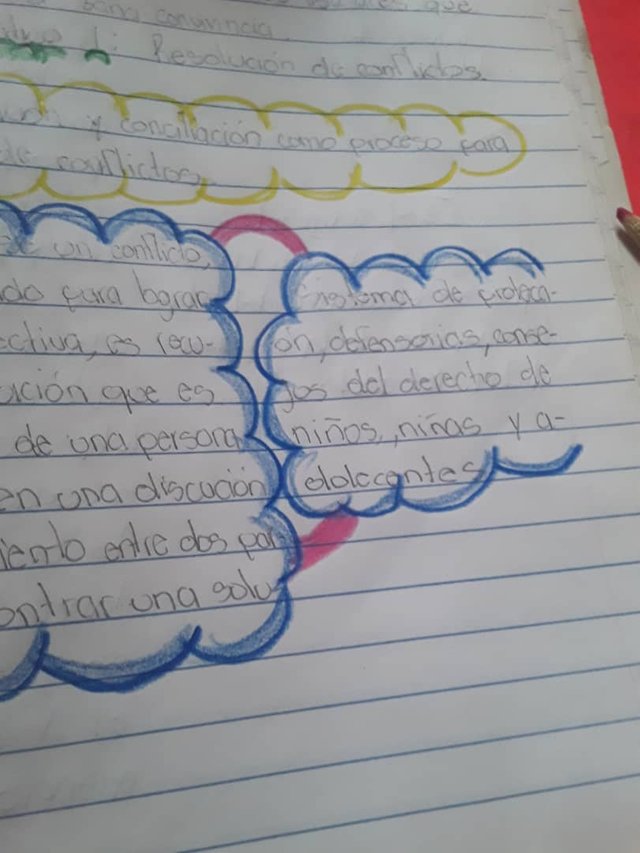 sana convivncia
Resolución de conflictos
y conciliación como proceso para
de conflictos
un conflicto,
para lograr
ectiva, es
ución que es
de una persona
en una discución
iento entre dos par
ontrar una solu
Sistema de protecci-
ón, defensorias, conse-
jos del derecho de
niños, niñas y a-
dolocentes